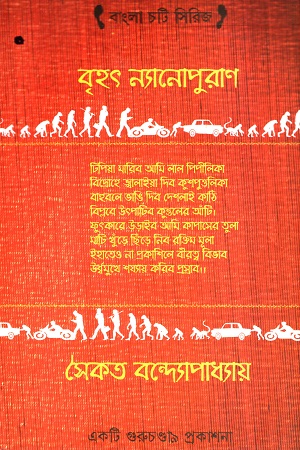 বাংলা চটি সিরিজ
বৃহৎ ন্যানোপুরাণ
টিপিয়া মারিব আমি লাল পিপীলিকা
বিদ্রোহে জ্বালাইয়া দিব কুশপুত্তলিকা
বাহুবলে ভাঙি দিব দেশলাই কাঠি
বিপ্লবে উৎপাটিব কুন্তলের আঁটি।
ফুৎকারে উড়াইব আমি কাপাসের তুলা
মাটি খুঁড়ে ছিঁড়ে নিব রক্তিম মূলা
ইহাতেও না প্রকাশিলে বীরত্ব বিভাব
উর্ধ্বমুখে শয্যায় করিব প্রস্রাব।।
সৈকত বন্দ্যোপাধ্যায়
একটি গুরুচণ্ডা৯ প্রকাশনা